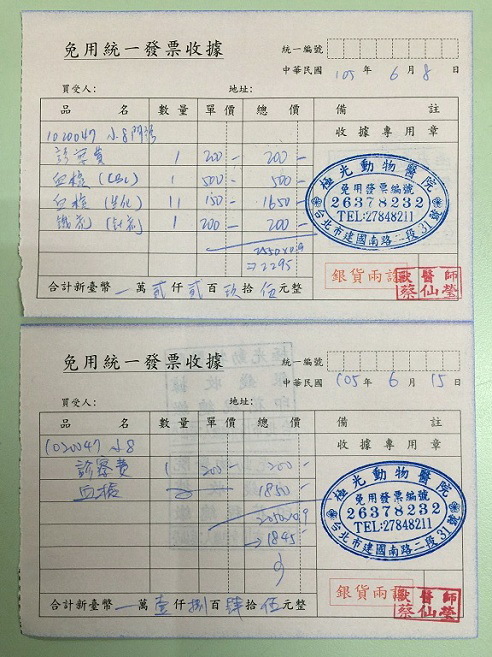 免用統一發票收據
統一編號
中華民國 105 年 6 月 8 日
買受人： 地址：
品 名 數量 單價 總價 備 註
1020047 小8
收據專用章
診察費 1 200- 200-
血檢 (CBC) 1 500 500-
血檢 (生化) 11 150- 1650-
1 200- 200-
2550x0.9
→2295
極光動物醫院
免用發票編號
26378232
TEL:27848211
台北市建國南路二段31號
銀貨兩訖
歐醫師
蔡仙瑩
合計新臺幣 萬 貳 仟 貳 百 玖 拾 伍 元整
免用統一發票收據
統一編號
中華民國 105 年 6 月 15 日
買受人： 地址：
品 名 數量 單價 總價 備 註
1020047 小8
收據專用章
診察費 1 200- 200-
血檢 1850-
2050x0.9
→1845
極光動物醫院
免用發票編號
26378232
TEL:27848211
台北市建國南路二段31號
銀貨兩訖
歐醫師
蔡仙瑩
合計新臺幣 萬 壹 仟 捌 百 肆 拾 伍 元整